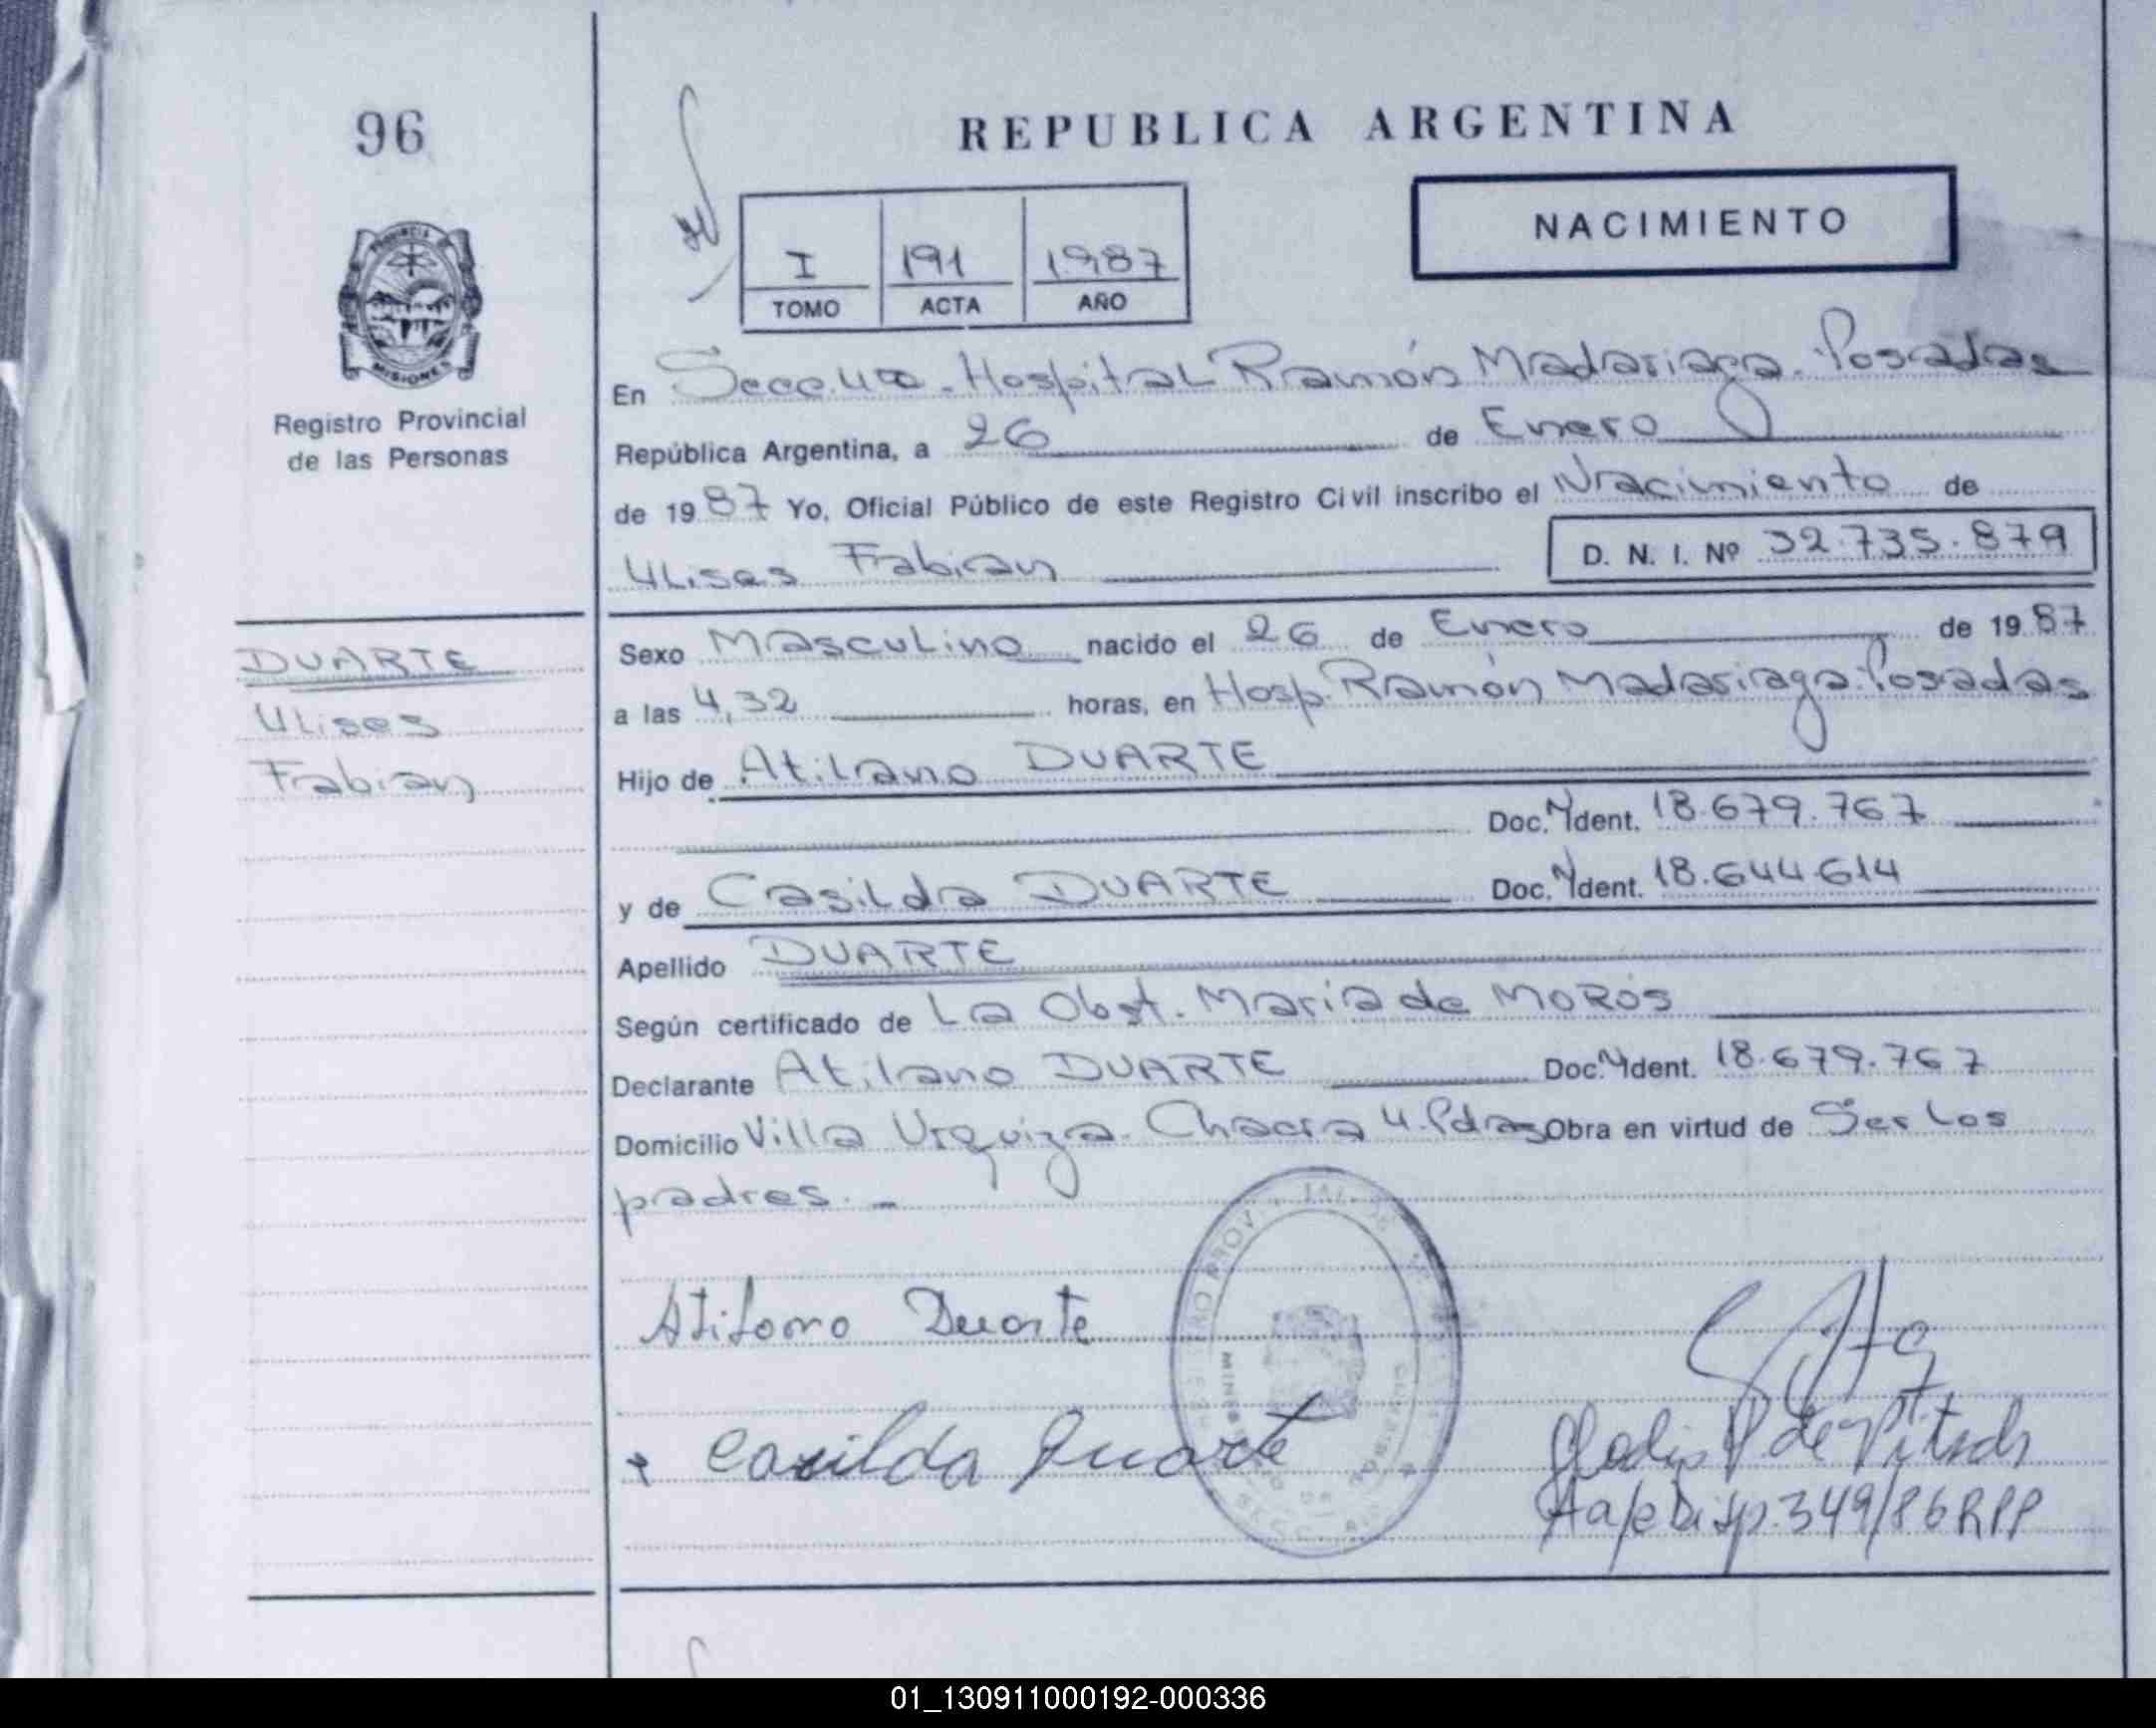 96
REPUBLICA ARGENTINA
NACIMIENTO
I 191 1987
TOMO ACTA AÑO
PROVINCIA DE
MISIONES
Registro Provincial
de las Personas
En Secc. 4ta. Hospital Ramón Madariaga. Posadas
República Argentina, a 26 de Enero
de 1987 Yo, Oficial Público de este Registro Civil inscribo el Nacimiento de
Ulises Fabian D. N. I. Nº 32.735.879
DUARTE
Ulises
Fabian
Sexo Masculino nacido el 26 de Enero de 1987
a las 4,32 horas, en Hosp. Ramón Madariaga. Posadas
Hijo de Atilano DUARTE
Doc. N Ident. 18.679.767
y de Casilda DUARTE Doc. N Ident. 18.644.614
Apellido DUARTE
Según certificado de La Obst. Maria de MOROS
Declarante Atilano DUARTE Doc. N Ident. 18.679.767
Domicilio Villa Urquiza. Chacra 4. Pdas Obra en virtud de Ser los
padres. -
Atilano Duarte
Casilda Duarte
de
Disp. 349/86 RPP
01_130911000192-000336